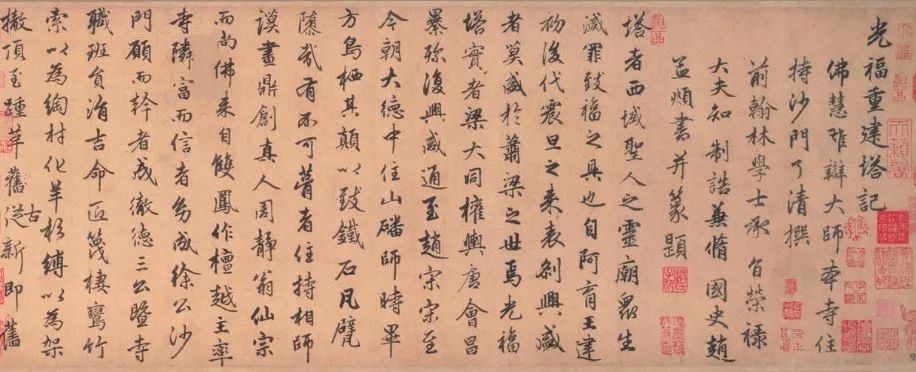 光福重建塔記
佛慧雄辯大師本寺住
持沙門了清撰
前翰林學士承旨榮祿
大夫知制誥兼脩國史趙
孟頫書并篆題
塔者西域聖人之靈廟眾生
滅罪致福之具也自阿育王建
初後代震旦之来表刹興盛
者莫盛於蕭梁之世焉光福
塔實者梁大同權輿唐會昌
暴殄後興咸通至趙宋宋至
今朝大德中住山磻師時畢
方鳥栖其顛以致鐵石瓦甓
隳哉有不可葺者住持相師
謨畫鼎創真人周靜翁仙宗
而尚佛来自雙鳳作檀越主率
寺隣富而信者為成徐公沙
門願而幹者成徹德三公暨寺
職班負治吉命匠篾棲鸞竹
索以為綯村化羊杉縛以為架
撤頂至踵革舊古從新即舊